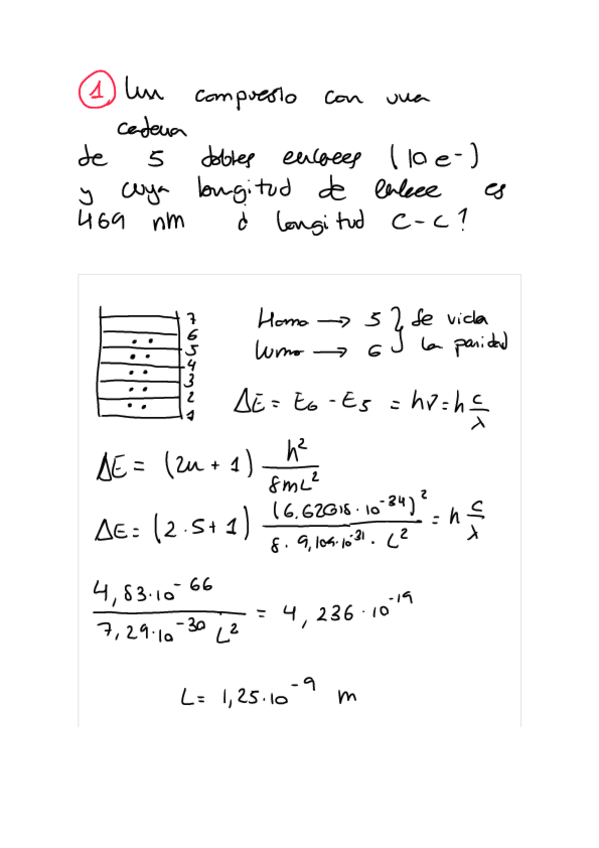 ① Un compuesto con una
cadena
de 5 dobles enlaces (10 e-)
y cuya longitud de enlace es
469 nm ¿ longitud C-C?
7
6
5
4
3
2
1
Homo → 5 } Se viola
Lumo → 6 } la paridad
ΔE = E6 - E5 = hν = h c/λ
ΔE = (2n + 1) h²/8mL²
ΔE = (2·5 + 1) (6,62618·10⁻³⁴)²/8·9,109·10⁻³¹·L² = h c/λ
4,83·10⁻⁶⁶/7,29·10⁻³⁰ L² = 4,236·10⁻¹⁹
L = 1,25·10⁻⁹ m